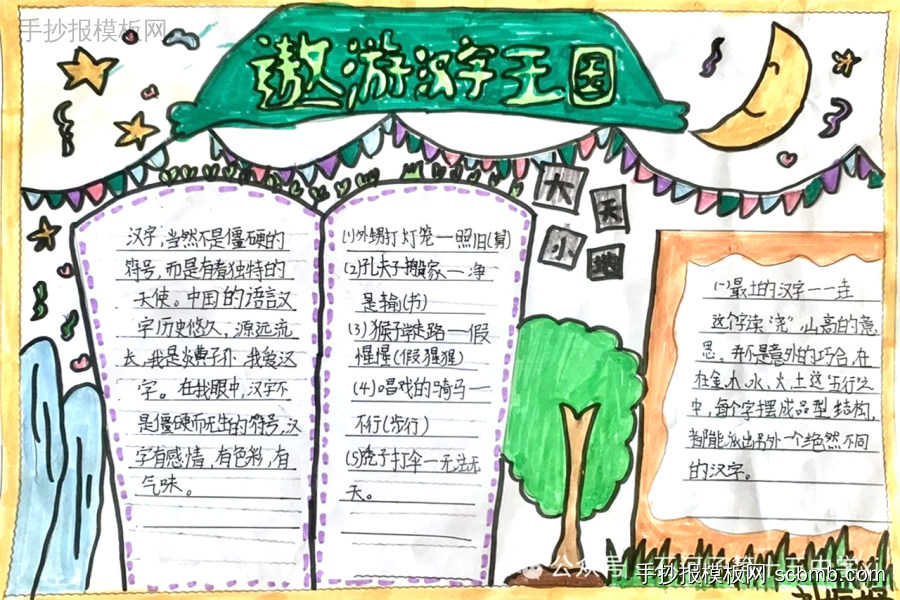 手抄报模板网
遨游汉字王国
大
天
小
地
汉字，当然不是僵硬的
符号，而是有着独特的
天使。中国的语言汉
字历史悠久，源远流
长，我是炎黄子孙，我爱汉
字。在我眼中，汉字不
是僵硬而死出的符号，汉
字有感情，有色彩，有
气味。
(1)外甥打灯笼—照旧(舅)
(2)孔夫子搬家—净
是输(书)
(3)猴子学走路—假
惺惺(假猩猩)
(4)唱戏的骑马—
不行(步行)
(5)秃子打伞—无法无
天。
(一)最土的汉字——垚
这个字读“尧”，山高的意
思。并不是意外的巧合，在
在金、木、水、火、土这五行之
中，每个字摆成品型结构，
都能派出另外一个绝然不同
的汉字。
公众号
手抄报模板网 scbmb.com